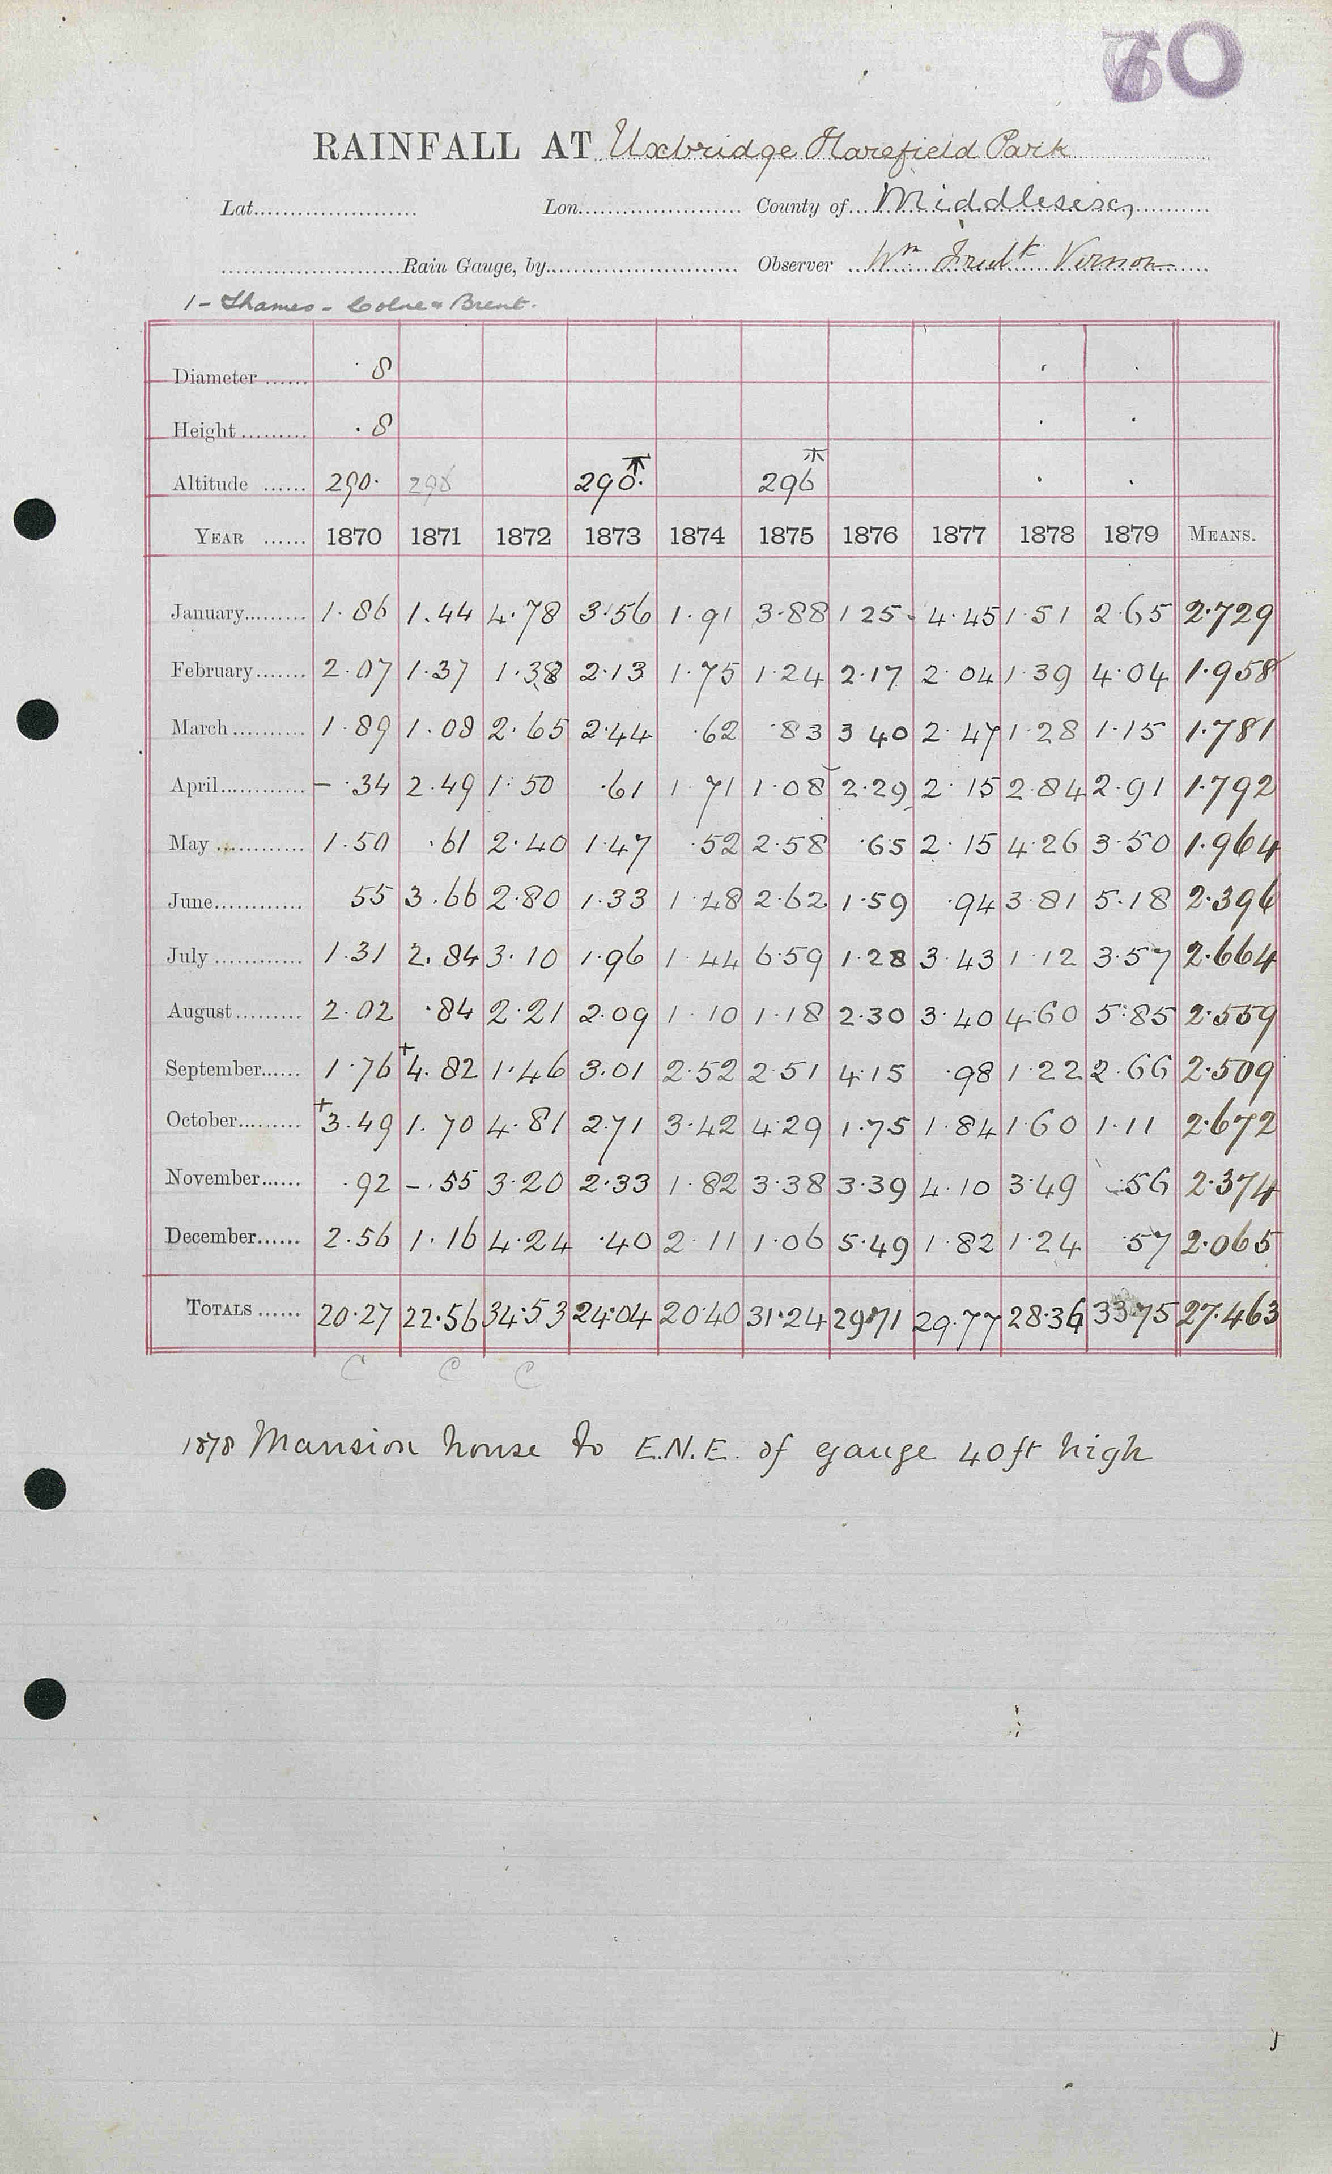 70
RAINFALL AT Uxbridge Harefield Park
Lat. Lon. County of Middlesex,
Rain Gauge, by Observer Wm Fredk Vernon
1 - Thames - Colne & Brent.
Diameter ...... 8
Height ......... .8
Altitude ...... 290. 290. 296
YEAR ...... 1870 1871 1872 1873 1874 1875 1876 1877 1878 1879 MEANS.
January......... 1.86 1.44 4.78 3.56 1.91 3.88 1 25 4.45 1.51 2.65 2.729
February....... 2.07 1.37 1.38 2.13 1.75 1.24 2.17 2 04 1.39 4.04 1.958
March.......... 1.89 1.08 2.65 2.44 .62 .83 3 40 2.47 1.28 1.15 1.781
April............ - .34 2.49 1.50 .61 1.71 1.08 2.29 2.15 2.84 2.91 1.792
May ............ 1.50 .61 2.40 1.47 .52 2.58 .65 2.15 4.26 3.50 1.964
June............ 55 3.66 2.80 1.33 1.48 2.62 1.59 .94 3.81 5.18 2.396
July ............ 1.31 2.84 3.10 1.96 1.44 6.59 1.28 3.43 1.12 3.57 2.664
August......... 2.02 .84 2.21 2.09 1.10 1.18 2.30 3.40 4.60 5.85 2.559
September...... 1.76 +4.82 1.46 3.01 2.52 2.51 4.15 .98 1.22 2.66 2.509
October......... +3.49 1.70 4.81 2.71 3.42 4.29 1.75 1.84 1.60 1.11 2.672
November...... .92 -.55 3.20 2.33 1.82 3.38 3.39 4.10 3.49 .56 2.374
December...... 2.56 1.16 4.24 .40 2.11 1.06 5.49 1.82 1.24 .57 2.065
TOTALS ...... 20.27 22.56 34.53 24.04 20.40 31.24 29.71 29.77 28.36 33.75 27.463
C C C
1878 Mansion house to E.N.E. of gauge 40ft high